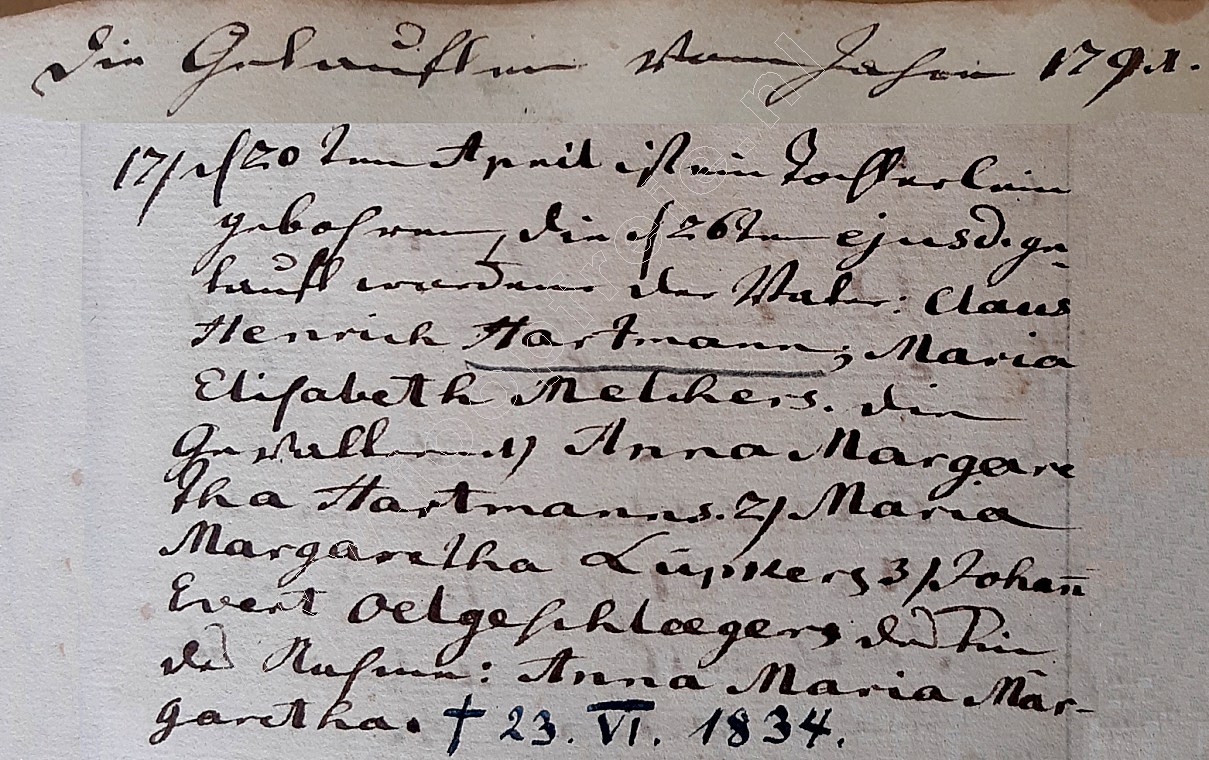 Die Getauften vom Jahre 1791.
17) d 20ten April ist ein Töchterlein
gebohren, die d 26ten ejusd. ge-
tauft worden der Vater: Claus
Henrich Hartmann, Maria
Elisabeth Melchers. die
Gevattern 1) Anna Margare
tha Hartmanns. 2) Maria
Margaretha Lüpkers 3) Johañ
Evert Oelgeschlaegers des Kin
des Nahme: Anna Maria Mar-
garetha. † 23. VI. 1834.